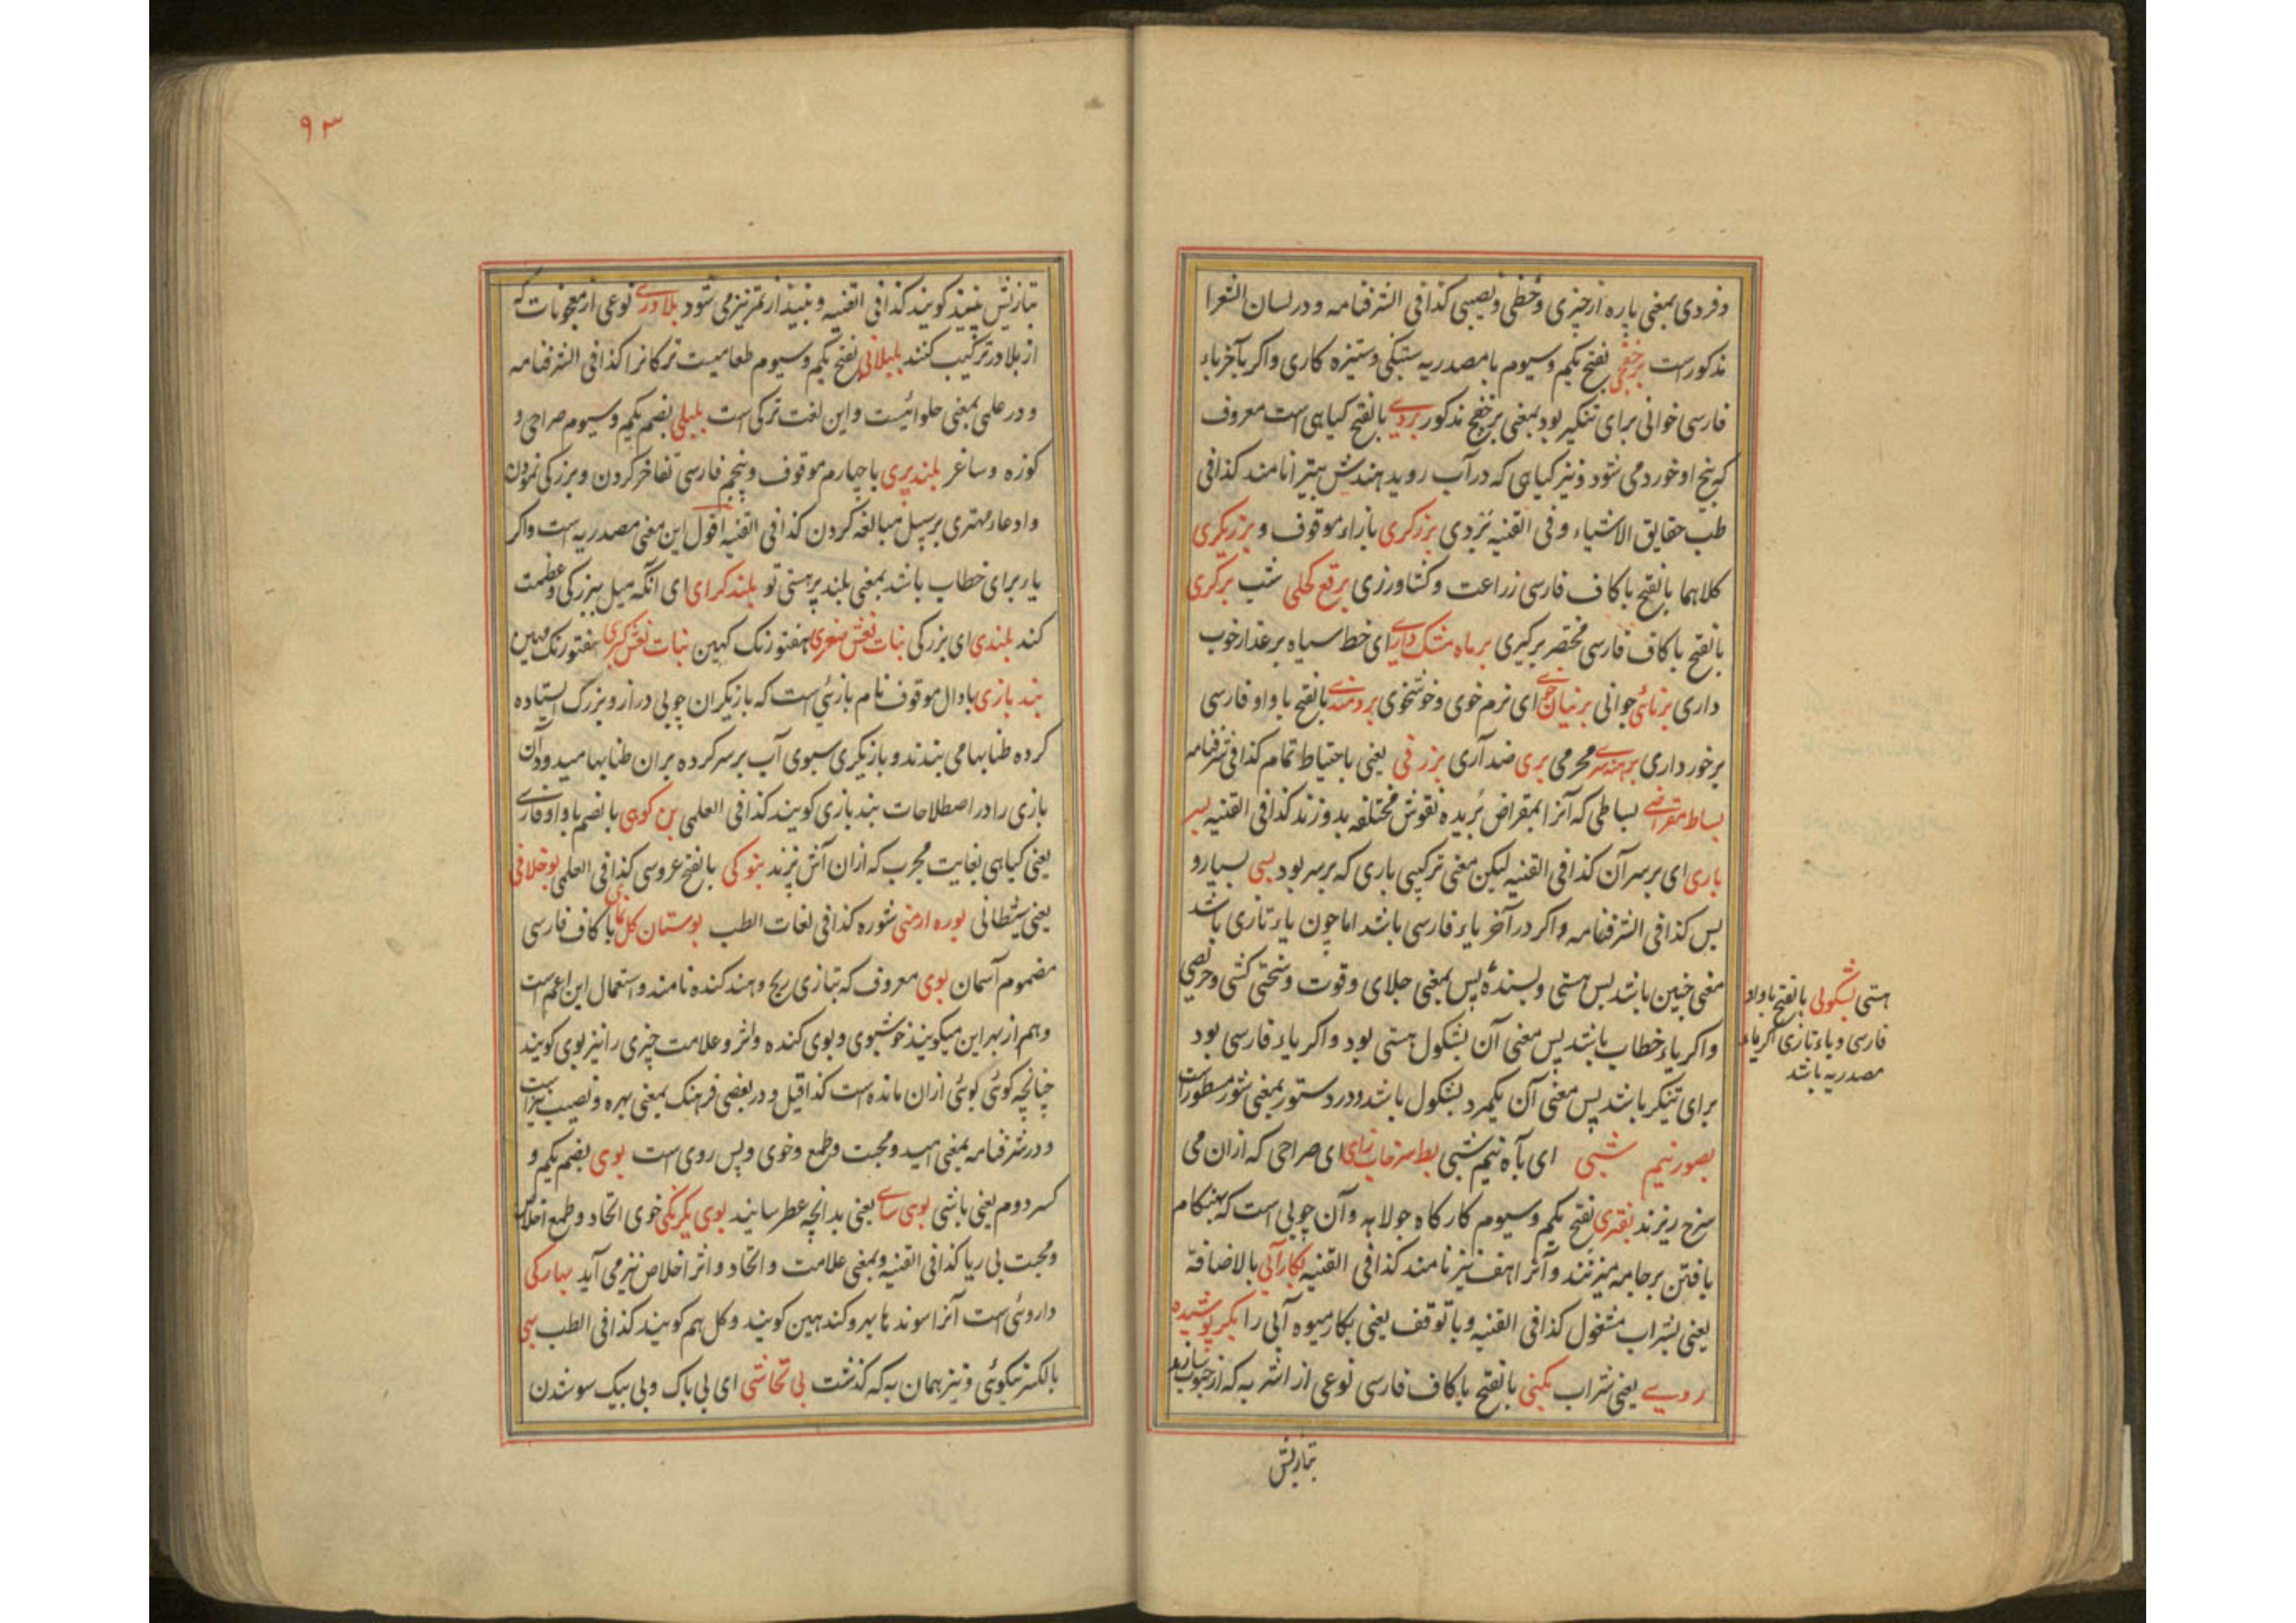 و فردی بمعنی پاره از چیزی و حظی و نصیبی کذا فی الشرفنامه و در لسان الشعرا
مذکورست برخفجی بفتح یکم و سیوم با مصدریه ستنبکی و ستیزه کاری و اکر بآخر یاء
فارسی خوانی برای تنکیر بود بمعنی برخفج مذکور بردی بالفتح کیاهی ست معروف
که بیخ او خورد می شود و نیز کیاهی که در آب روید هندش بتیرا نامند کذا فی
طب حقایق الاشیاء و فی القنیه نزدی بزرکری بازاء موقوف و بزریکری
کلاهما بالفتح با کاف فارسی زراعت و کشاورزی برقع کحلی شب برکری
بالفتح با کاف فارسی مختصر برکیری بر ماه مشک داری ای خط سیاه بر عذار خوب
داری برنائی جوانی برنیان خوی ای نرم خوی و خوشخوی برومندی بالفتح با واو فارسی
برخورداری برهندسی محرمی بری ضد آری بزرقی یعنی باحتیاط تمام کذا فی شرفنامه
بساط مقراضی بساطی که آنرا بمقراض بریده نقوش مختلفه بدوزند کذا فی القنیه بسر
باری ای بر سر آن کذا فی القنیه لیکن معنی ترکیبی باری که بر سر بود بسی بسیار و
بس کذا فی الشرفنامه و اکر در آخر یاء فارسی باشد اما چون یاء تازی باشد
معنی چنین باشد بس هستی و بسنده پس بمعنی جلای و قوت و سختی کشی و حریصی
و اکر یاء خطاب باشد پس معنی آن بشکول هستی بود و اکر یاء فارسی بود
برای تنکیر باشد پس معنی آن یکمرد بشکول باشد و در دستور بمعنی شور مسطورست
بصور نیم شبی ای بآه نیم شبی بط سرخاب زای ای صراحی که ازان می
سرخ ریزند بفتری بفتح یکم و سیوم کارکاه جولاهه و آن چوبی است که بهنکام
بافتن بر جامه میزنند و آنرا هف نیز نامند کذا فی القنیه بکار آبی بالاضافة
یعنی بشراب مشغول کذا فی القنیه و با توقف یعنی بکار میوه آبی را بکر پوشیده
روی یعنی شراب بکنی بالفتح با کاف فارسی نوعی از اشربه که از حبوب سازند
هستی بشکولی بالفتح با واو
فارسی و یاء تازی اکر یاء
مصدریه باشد
بتازیش
۹۳
بتازیش نبیذ کویند کذا فی القنیه و نبیذ از تمر نیز می شود بلادری نوعی از معجونات که
از بلادر ترکیب کنند بلبلانی بفتح یکم و سیوم طعامیست ترکانرا کذا فی الشرفنامه
و در علمی بمعنی حلوائیست و این لغت ترکی است بلبلی بضم یکم و سیوم صراحی و
کوزه و ساغر بلند پری با چهارم موقوف و پنجم فارسی تفاخر کردن و بزرکی نمودن
و ادعاء مهتری بر سبیل مبالغه کردن کذا فی القنیه اقول این معنی مصدریه است و اکر
یا ربرای خطاب باشد بمعنی بلند پر هستی تو بلند کرای ای آنکه میل ببزرکی و عظمت
کند بلندی ای بزرکی بنات نعش صغری هفتو رنک کهین بنات نعش کبری هفتو رنک مهین
بند بازی با دال موقوف نام بازئی است که بازیکران چوبی دراز و بزرک ایستاده
کرده طنابها می بندند و بازیکری سبوی آب بر سر کرده بران طنابها میدود آن
بازی را در اصطلاحات بند بازی کویند کذا فی العلمی بن کوهی بالضم با واو فارسی
یعنی کیاهی بغایت مجرب که ازان آش پزند بنوکی بالفتح عروسی کذا فی العلمی بوخلافی
یعنی شیطانی بوره ارمنی شوره کذا فی لغات الطب بوستان کل نمای با کاف فارسی
مضموم آسمان بوی معروف که بتازی ریح و هند کنده نامند و استعمال این اعم است
و هم از بهر این میکویند خوشبوی و بوی کنده و اثر و علامت چیزی را نیز بوی کویند
چنانچه کوئی بوئی ازان مانده است کذا قیل و در بعضی فرهنک بمعنی بهره و نصیب نیز است
و در شرفنامه بمعنی امید و محبت و طمع و خوی و پس روی است بوی بضم یکم و
کسر دوم یعنی باشی بوی سای یعنی بدانچه عطر سایند بوی یکرنکی خوی اتحاد و طمع اخلاص
و محبت بی ریا کذا فی القنیه و بمعنی علامت و اتحاد و اثر اخلاص نیز می آید بهارکی
داروئی است آنرا سوندها بهروکندهین کویند و کل هم کویند کذا فی الطب بهی
بالکسر نیکوئی و نیز همان به که کذشت بی تحاشی ای بی باک و بی بیک سو شدن